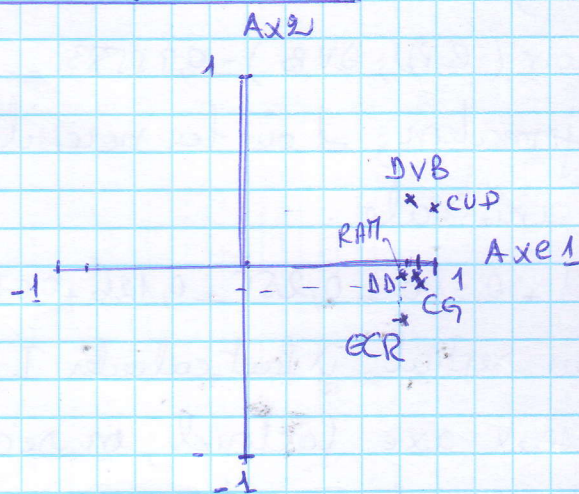 Ax2
1
DVB
CUP
RAM
Axe 1
-1
DD
1
CG
ECR
-1